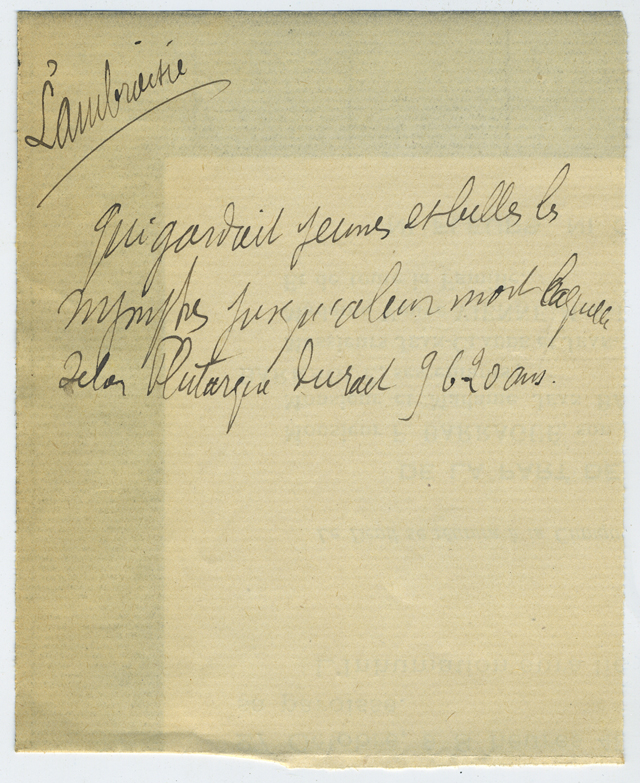 L'ambroisie
qui gardait jeunes et belles les
nymphes jusqu'a leur mort laquelle
selon Plutarque durait 9620 ans.